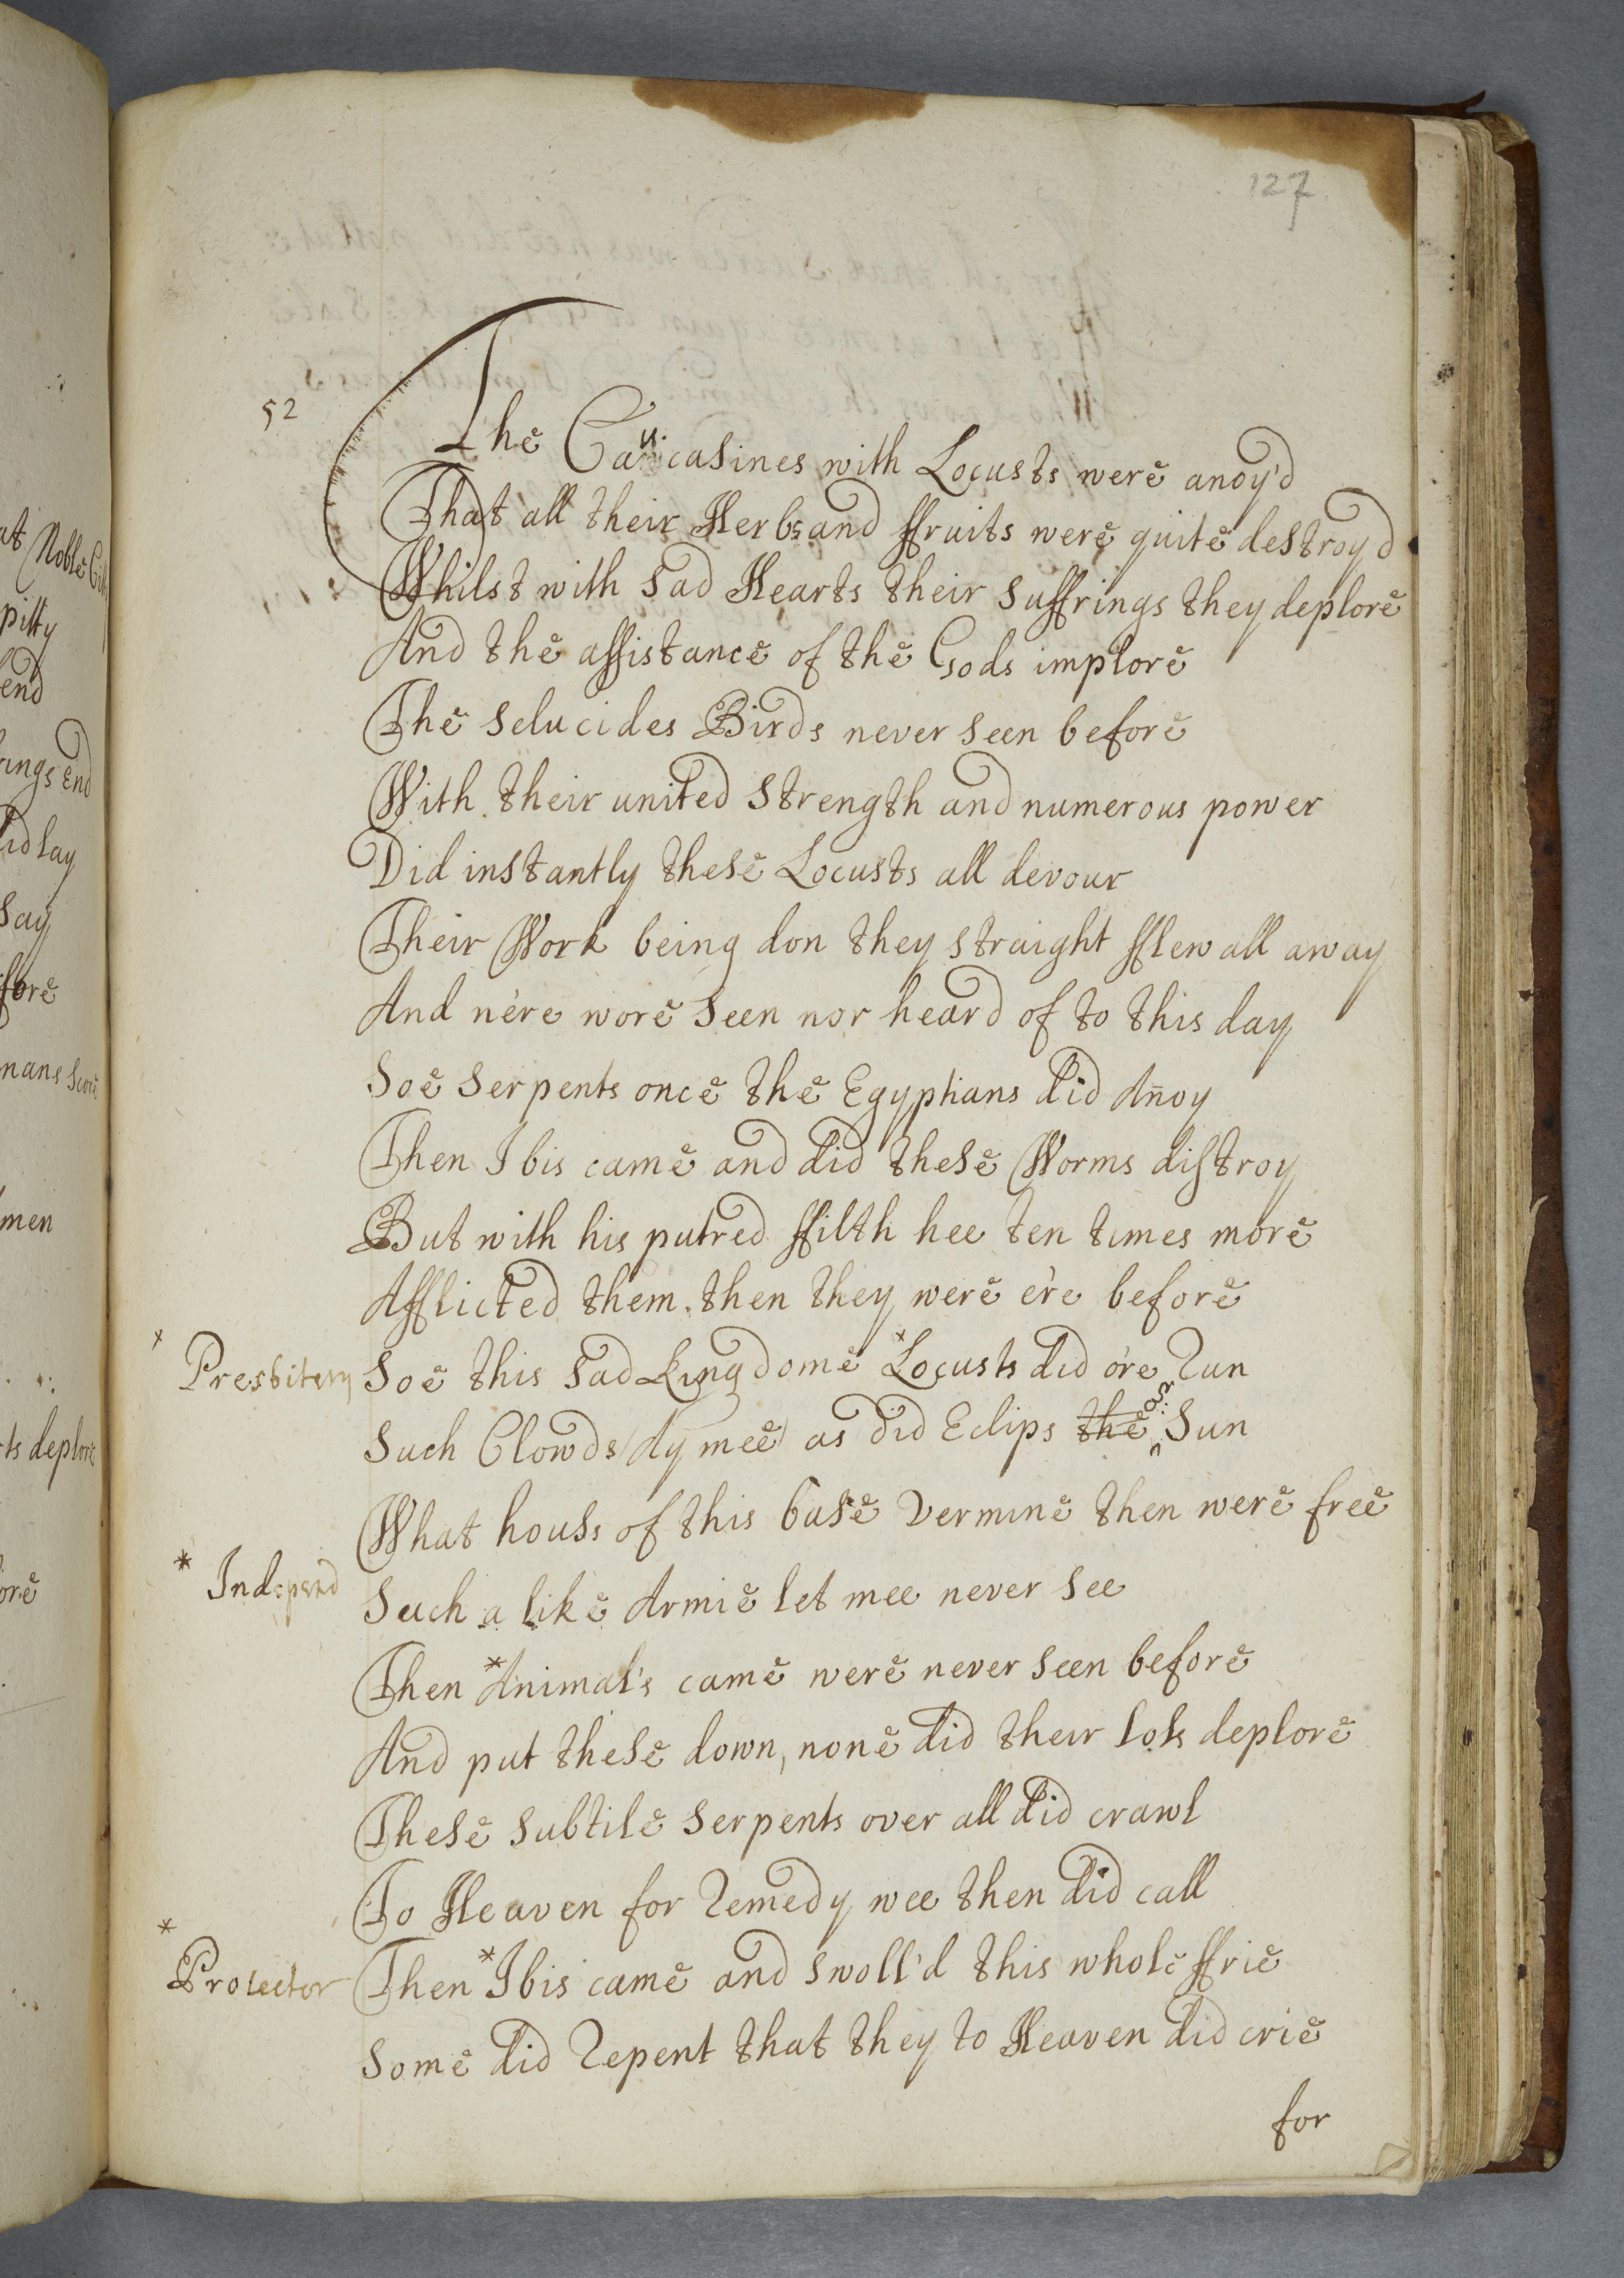 127
52
The Caucasines with Locusts were anoy'd
That all their Herbs and ffruits were quite destroy'd
Whilst with sad Hearts their suffrings they deplore
And the assistance of the Gods implore
The Selucides Birds never seen before
With their united strength and numerous power
Did instantly these Locusts all devour
Their Work being don they straight fflew all away
And ne're wore seen nor heard of to this day
Soe Serpents once the Egyptians did Añoy
Then Ibis came and did these Worms distroy
But with his putred ffilth hee ten times more
Afflicted them then they were e're before
* Presbitery
Soe this sad Kingdome *Locusts did o're Run
Such Clowds (Ay mee) as did Eclips the our Sun
What houss of this base Vermine then were free
* Independ
Such a like Armie let mee never see
Then *Animal's came were never seen before
And put these down, none did their loss deplore
These subtile Serpents over all did crawl
To Heaven for Remedy wee then did call
* Protector
Then *Ibis came and swoll'd this whole ffrie
Some did Repent that they to Heaven did crie
for
at Noble
pitty
end
rings End
did lay
say
fore
mans score
men
ts deplore
ore